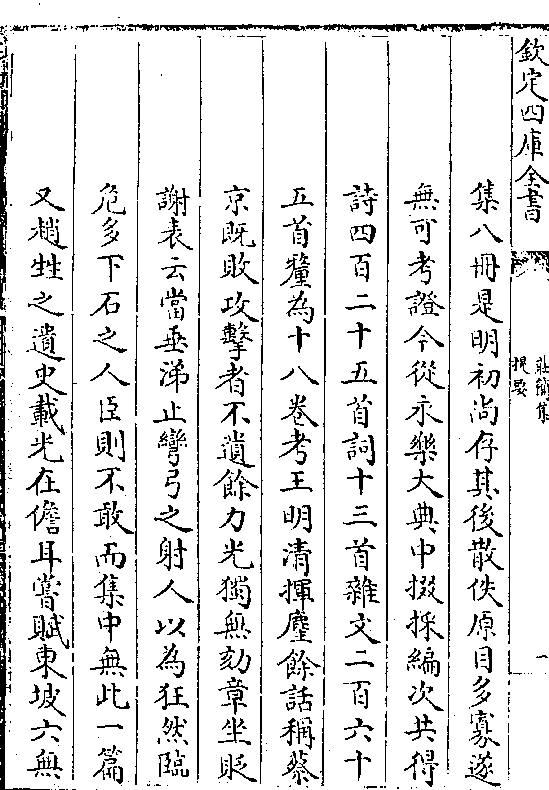 欽定四庫全書
莊簡集
提要
一
集八冊是明初尚存其後散佚原目多寡遂
無可考證今從永樂大典中掇採編次共得
詩四百二十五首詞十三首雜文二百六十
五首釐為十八卷考王明清揮麈餘話稱蔡
京既敗攻擊者不遺餘力光獨無劾章坐貶
謝表云當垂涕止彎弓之射人以為狂然臨
危多下石之人臣則不敢而集中無此一篇
又趙甡之遺史載光在儋耳嘗賦東坡六無